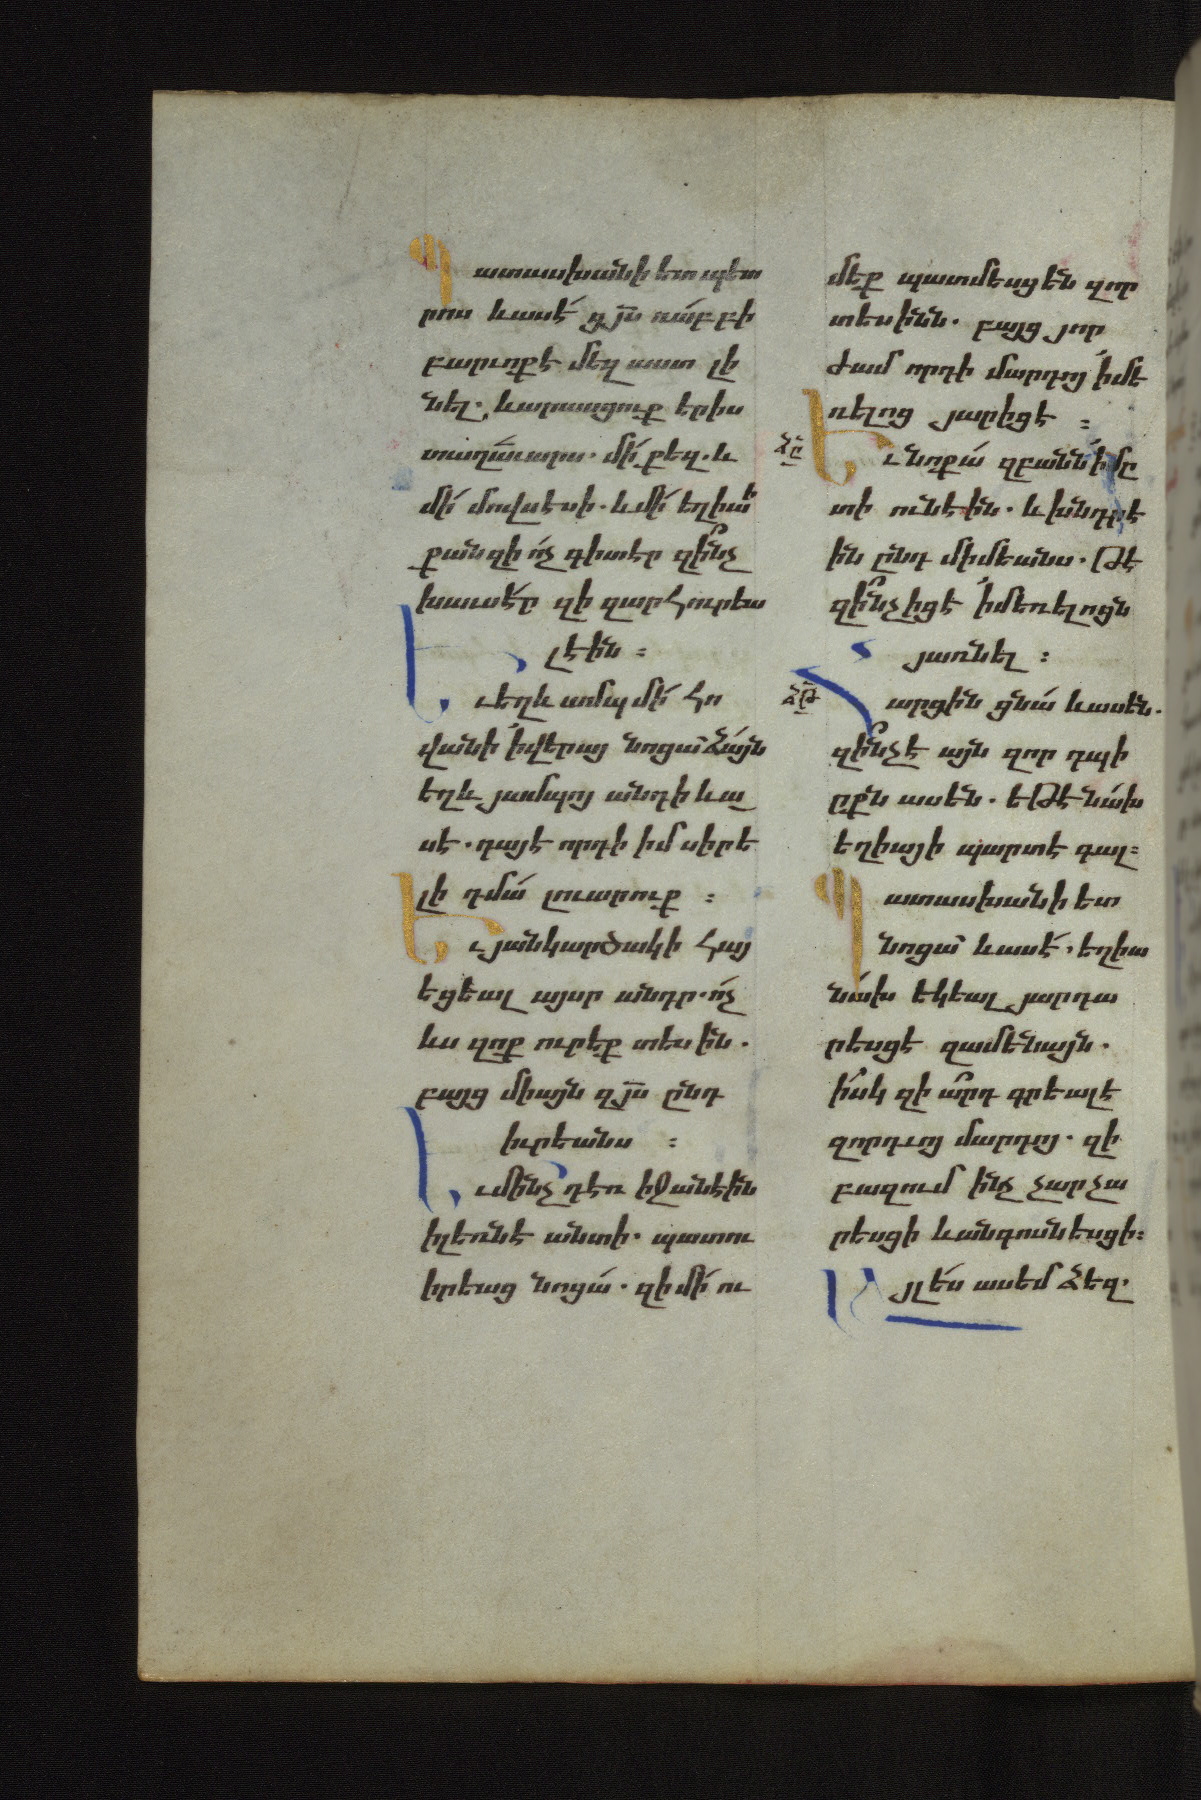 Պատասխանի ետ պետ
րոս և ասէ ցյս ռաբբի
բարւոք է մեզ աստ լի
նել. և արասցուք երիս
տաղաւարս. մի քեզ. և
մի մովսէսի. և մի եղիայի
քանզի ոչ գիտէր զինչ
խաւսէր զի զարհուրեա
լէին :
Եւ եղև ամպ մի հո
վանի ի վերայ նոցա ձայն
եղև յամպոյ անդի և ա
սէ. դա է որդի իմ սիրե
լի դմա լուարուք :
Եւ յանկարծակի հայ
եցեալ այսր անդր. ոչ
ևս զոք ուրեք տեսին.
բայց միայն զյս ընդ
իւրեանս :
Եւ մինչ դեռ իջանէին
ի լեռնէ անտի. պատու
իրեաց նոցա. զի մի ու
մեք պատմեսցեն զոր
տեսինն. բայց յոր
ժամ որդի մարդոյ ի մե
ռելոց յարիցէ :
ՃԸ
Եւ նոքա զբանն ի մը
տի ունէին. և խնդրէ
ին ընդ միմեանս. թէ
զինչ իցէ ի մեռելոցն
յառնել :
ՃԹ
Հարցին ցնա և ասեն.
զինչ է այն զոր դպի
րքն ասեն. եթէ նախ
եղիայի պարտէ գալ:
Պատասխանի ետ
նոցա և ասէ. եղիա
նախ եկեալ յարդա
րեսցէ զամենայն.
իսկ զի արդ գրեալ է
զորդւոյ մարդոյ. զի
բազում ինչ չարչա
րեսցի և անգոսնեսցի:
Այլ ես ասեմ ձեզ.